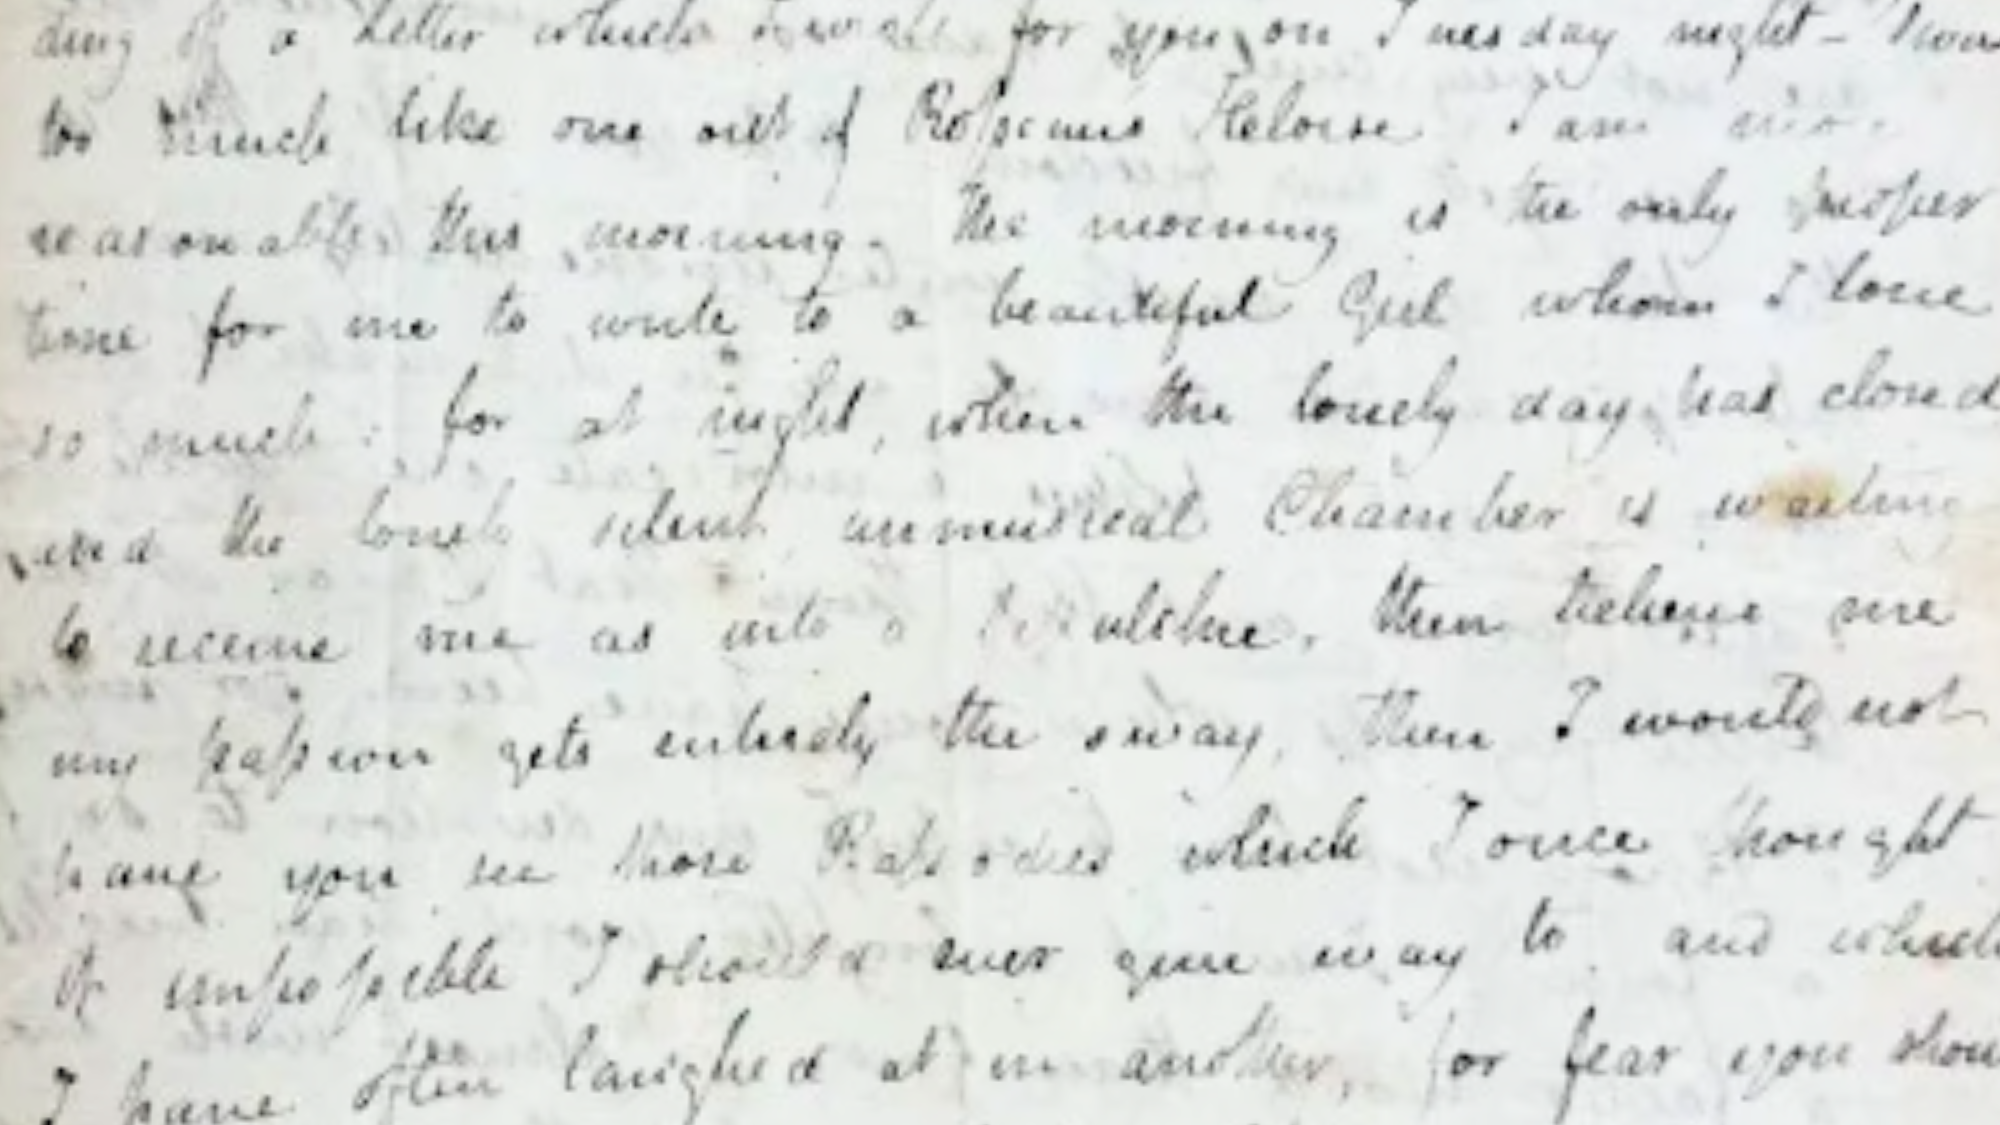 ding of a Letter which I wrote for you on Tuesday night – 'twas
too much like one out of Roſseaus Heloise I am more
reasonable this morning. The morning is the only proper
time for me to write to a beautiful Girl whom I love
so much: for at night, when the lonely day has closed
and the lonely silent unmusical Chamber is waiting
to receive me as into a Sepulchre, then believe me
my paſsion gets entirely the sway, then I would not
have you see those Rapsodies which I once thought
it impoſsible I should ever give way to and which
I have often laughed at in another, for fear you shou